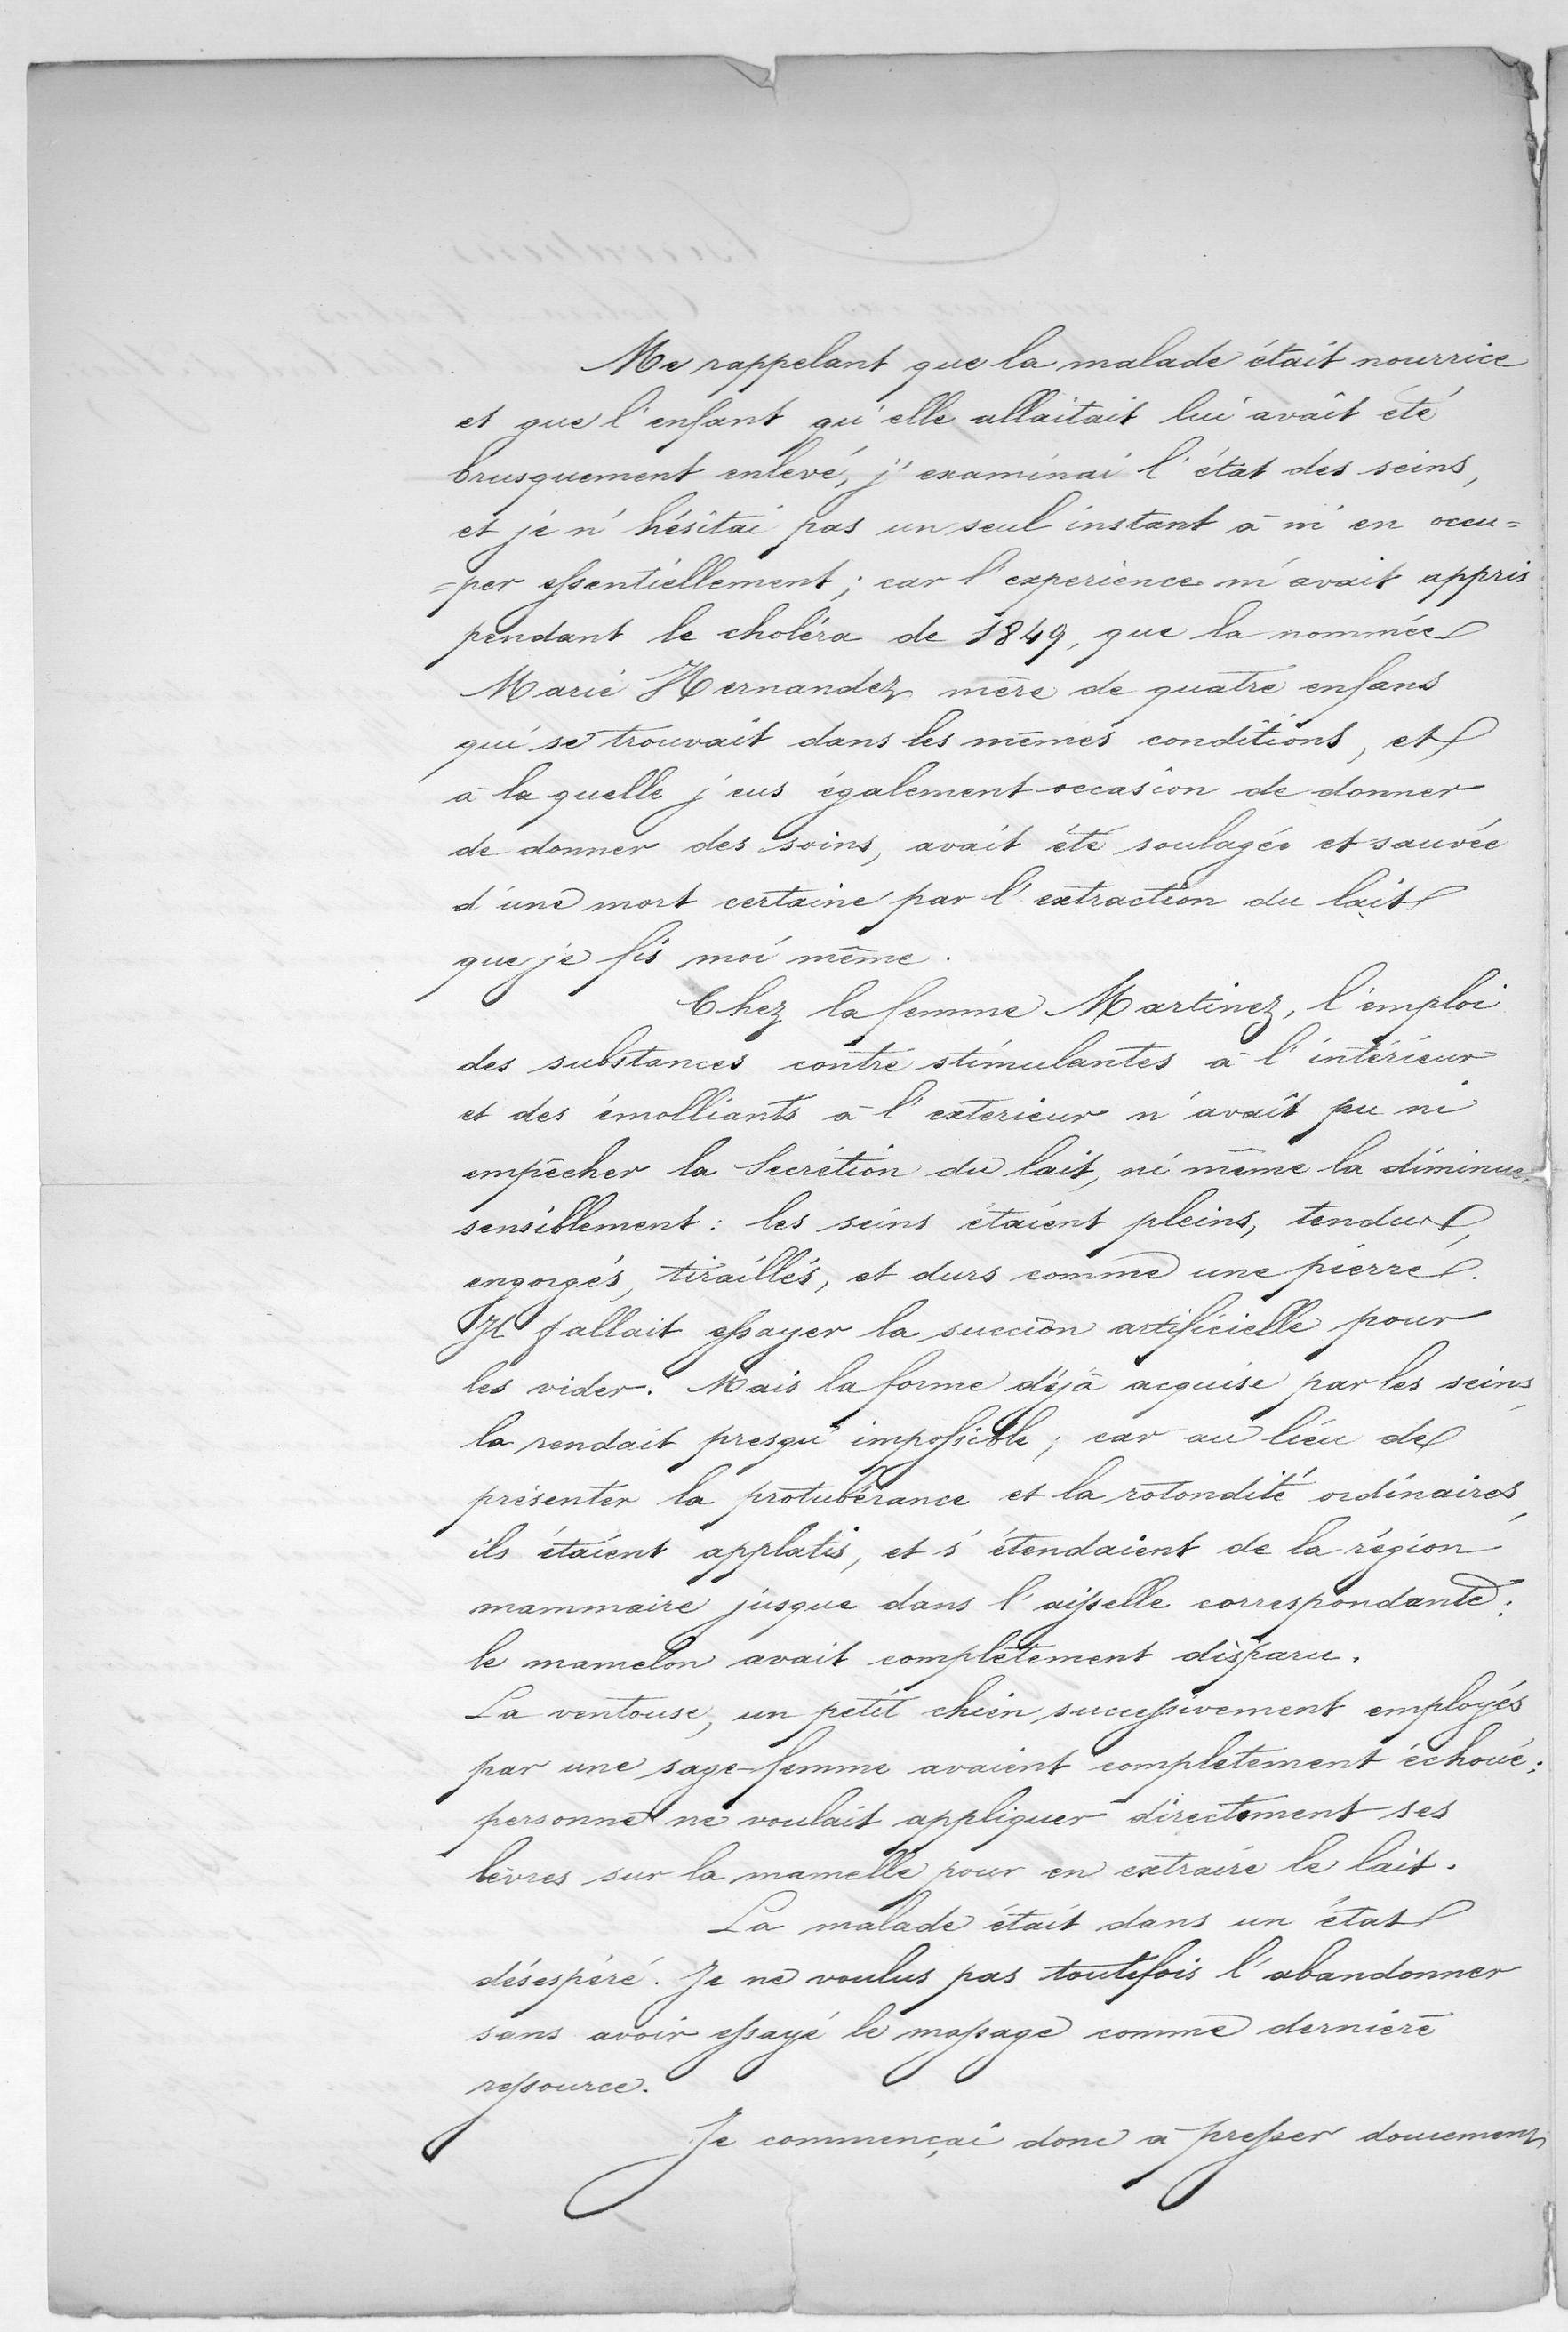 Me rappelant que la malade était nourrice
et que l'enfant qu'elle allaitait lui avait été
brusquement enlevé, j'examinai l'état des seins,
et je n'hésitai pas un seul instant à m'en occu=
=per essentiellement; car l'experience m'avait appris
pendant le choléra de 1849, que la nommée
Marie Hernandez mère de quatre enfans
qui se trouvait dans les mêmes conditions, et
à la quelle j'eus également occasion de donner
de donner des soins, avait été soulagée et sauvée
d'une mort certaine par l'extraction du lait
que je fis moi même.
Chez la femme Martinez, l'emploi
des substances contre stimulantes à l'intérieur
et des émolliants à l'exterieur n'avait pu ni
empêcher la Secrétion du lait, ni même la diminuer
sensiblement: les seins étaient pleins, tendus,
engorgés, tiraillés, et durs comme une pierre.
Il fallait essayer la succion artificielle pour
les vider. Mais la forme déjà acquise par les seins
la rendait presqu'impossible; car au lieu de
présenter la protubérance et la rotondité ordinaires,
ils étaient applatis, et s'étendaient de la région
mammaire jusque dans l'aisselle correspondante:
le mamelon avait complètement disparu.
La ventouse, un petit chien successivement employés
par une sage-femme avaient complètement échoué;
personne ne voulait appliquer directement ses
lèvres sur la mamelle pour en extraire le lait.
La malade était dans un état
désespéré. Je ne voulus pas toutefois l'abandonner
sans avoir essayé le massage comme dernière
ressource.
Je commençai donc à presser doucement